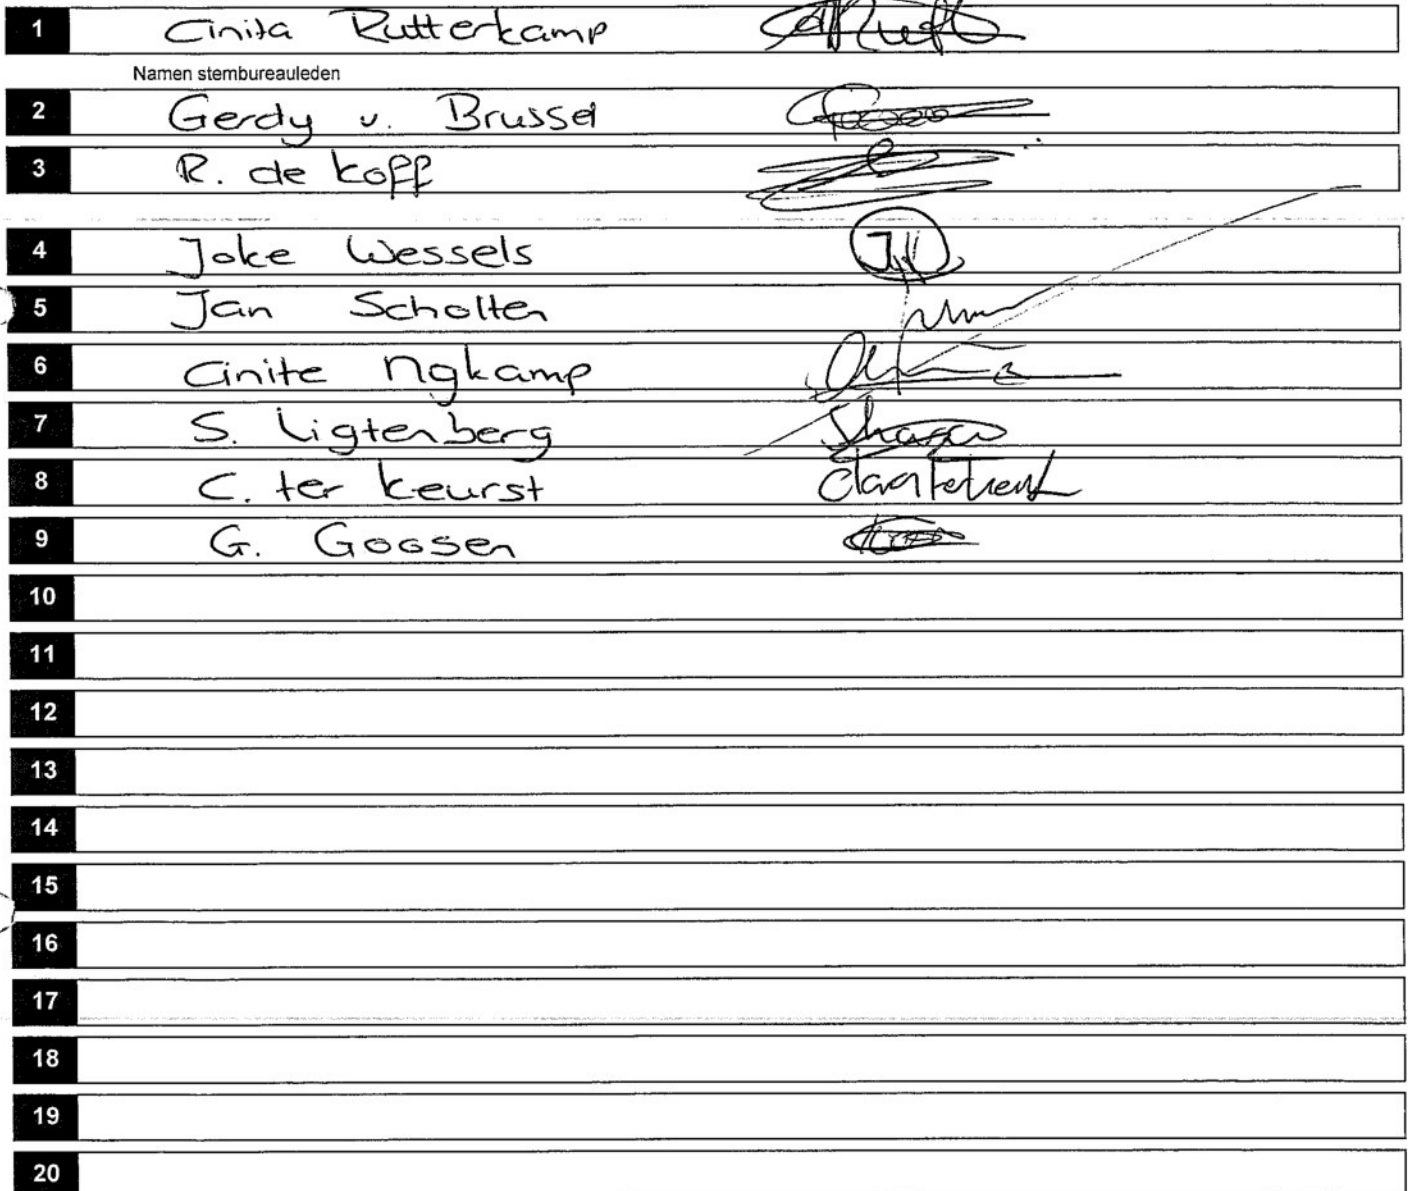 1 Anita Rutterkamp
Namen stembureauleden
2 Gerdy v. Brussel
3 R. de Koff
4 Joke Wessels JW
5 Jan Scholten
6 Anite Nykamp
7 S. Ligtenberg
8 C. ter Keurst
9 G. Goosen
10
11
12
13
14
15
16
17
18
19
20